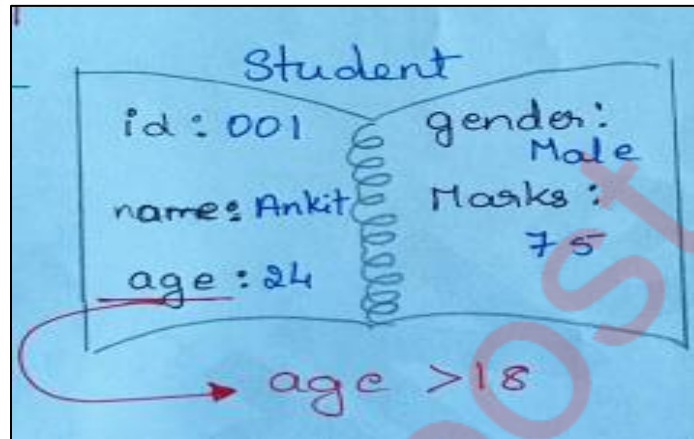 Student
id : 001
name : Ankit
age : 24
gender :
Male
Marks :
75
age >18